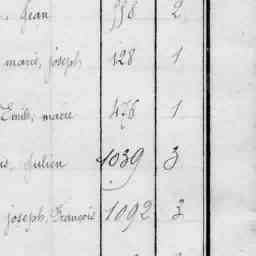 Jean 558 2
marie, joseph 128 1
Emile, marie 476 1
Julien 1039 3
joseph, François 1092 3